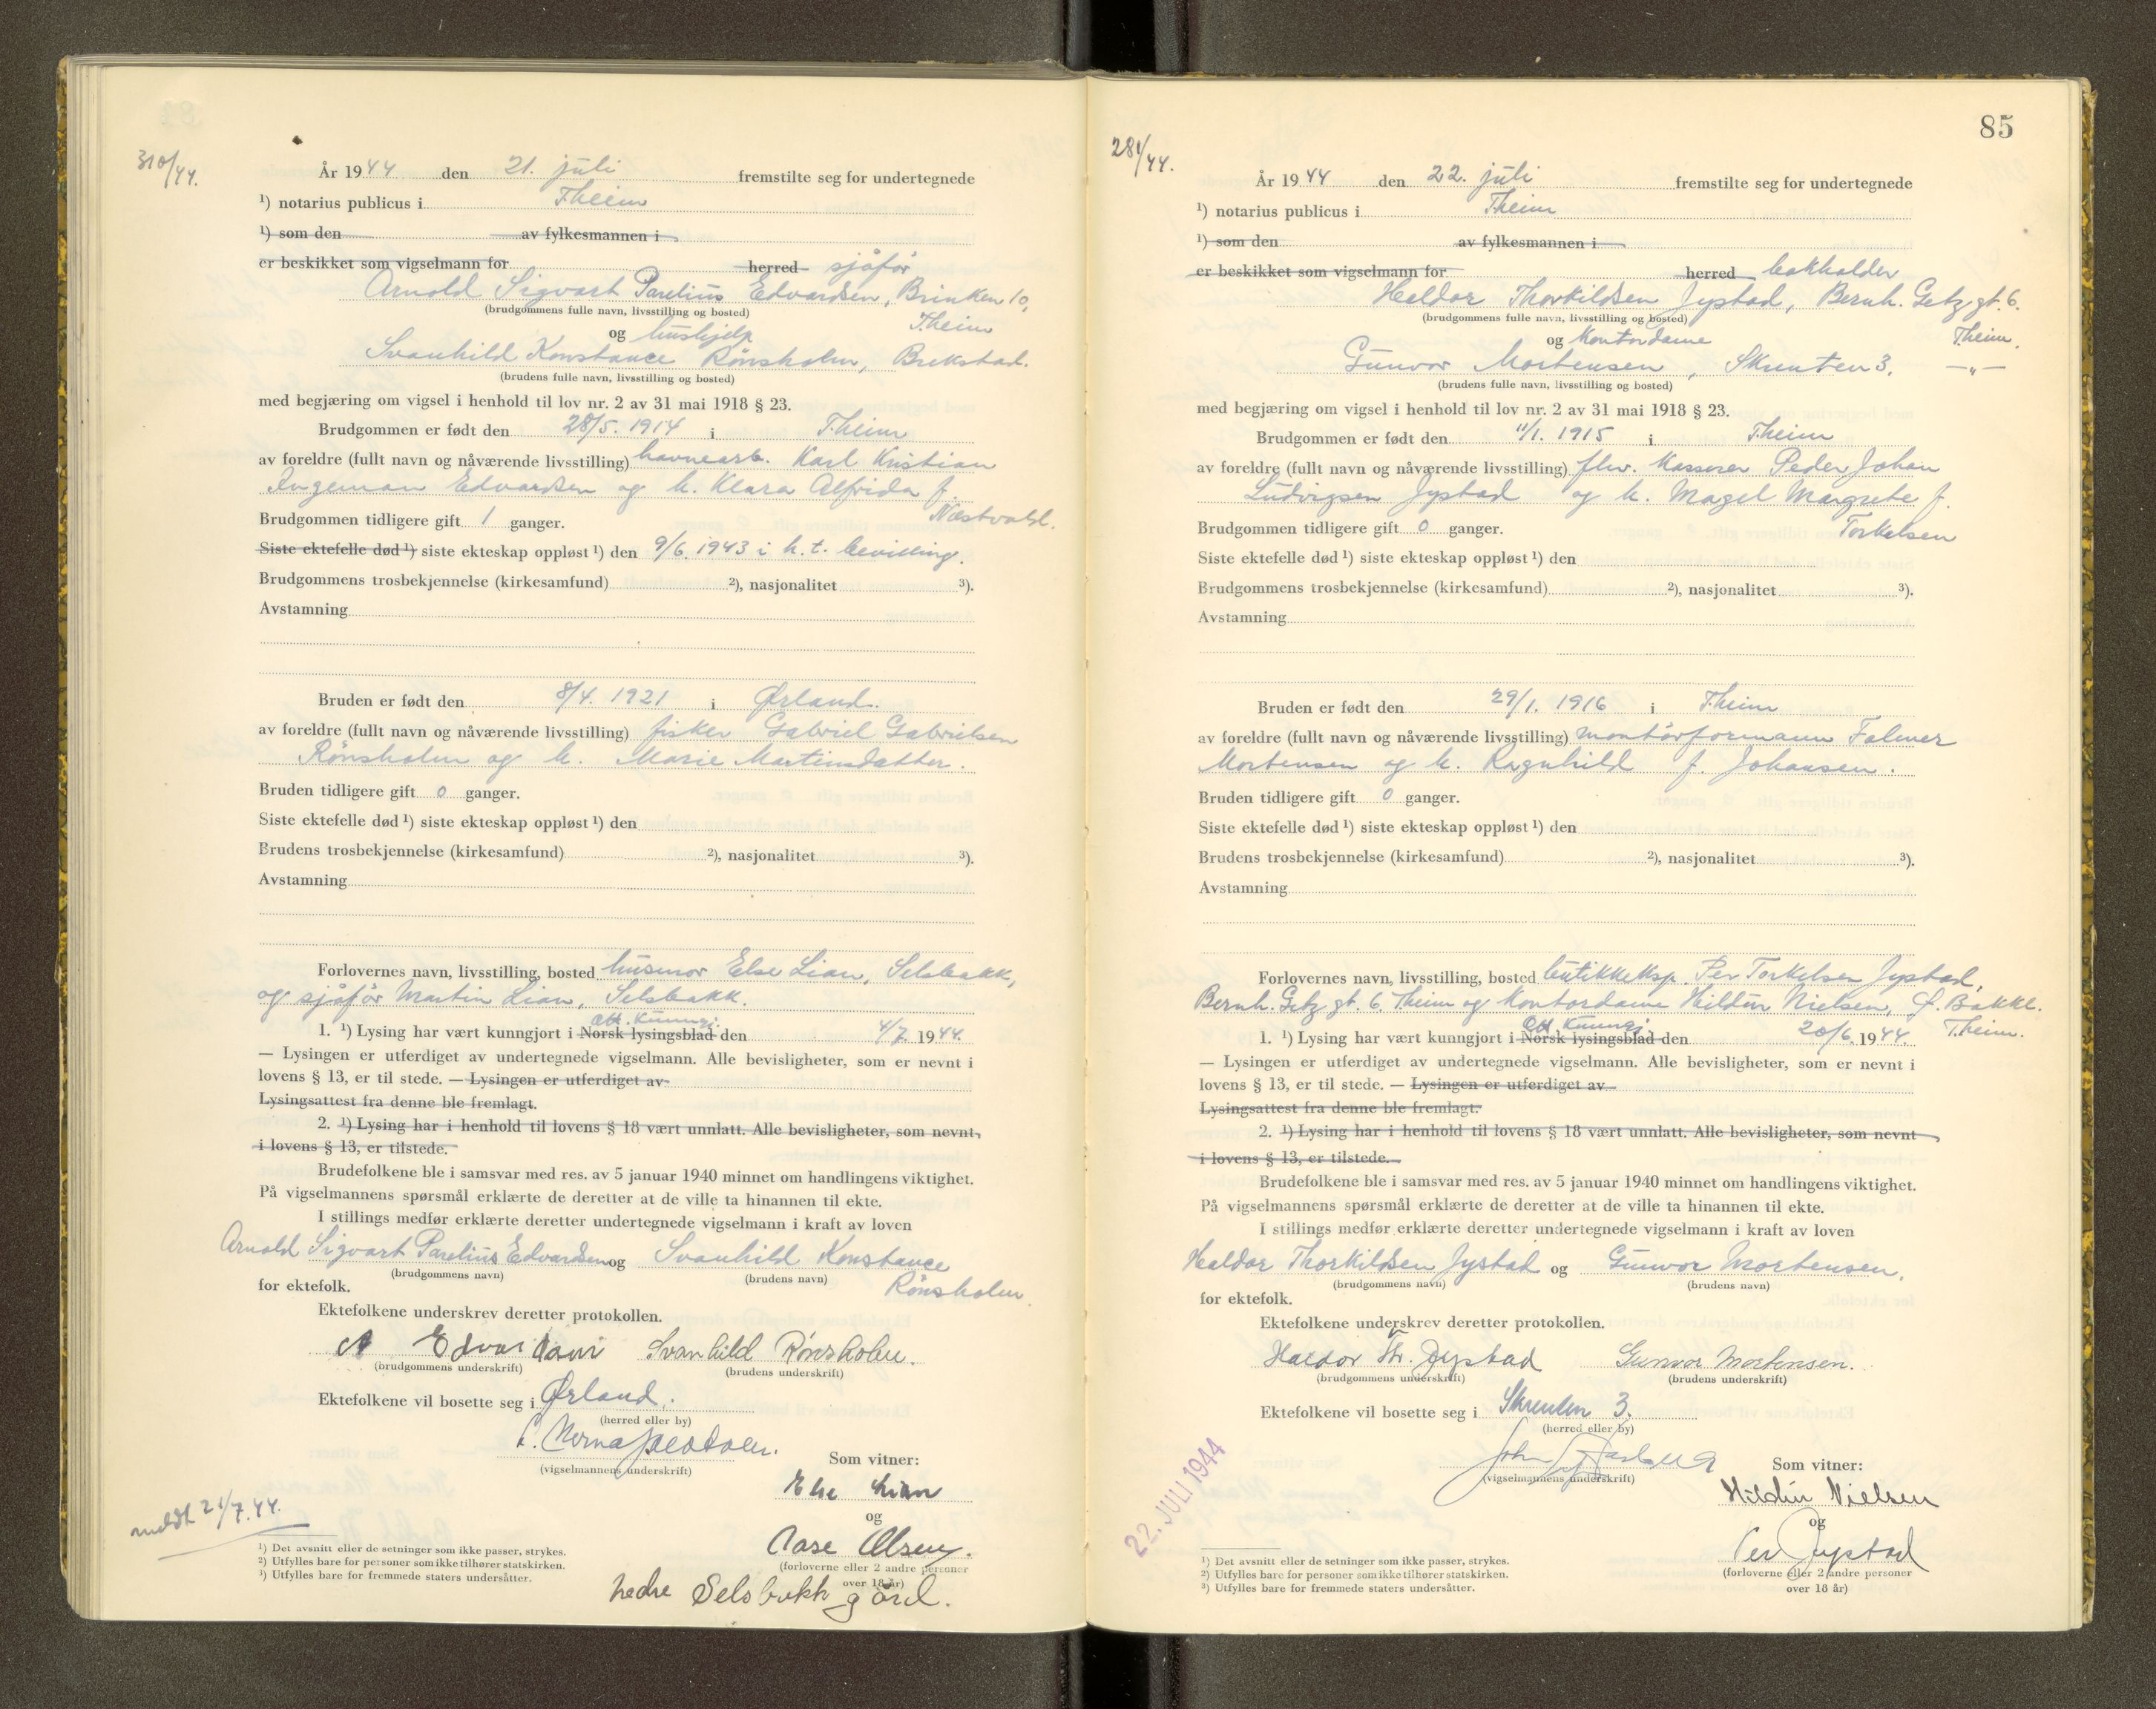 310/44.
År 1944 den 21. juli fremstilte seg for undertegnede
¹) notarius publicus i T.heim
¹) som den av fylkesmannen i
er beskikket som vigselmann for herred sjåfør
Arnold Sigvart Parelius Edvardsen, Brinken 10,
(brudgommens fulle navn, livsstilling og bosted)
T.heim
og hushjelp
Svanhild Konstance Rønsholm, Brekstad.
(brudens fulle navn, livsstilling og bosted)
med begjæring om vigsel i henhold til lov nr. 2 av 31 mai 1918 § 23.
Brudgommen er født den 28/5. 1914 i T.heim
av foreldre (fullt navn og nåværende livsstilling) havnearb. Karl Kristian
Ingeman Edvardsen og h. Klara Alfrida f.
Næstvold.
Brudgommen tidligere gift 1 ganger.
Siste ektefelle død ¹) siste ekteskap oppløst ¹) den 9/6. 1943 i h.t. bevilling.
Brudgommens trosbekjennelse (kirkesamfund) ²), nasjonalitet ³).
Avstamning
Bruden er født den 8/4. 1921 i Ørland.
av foreldre (fullt navn og nåværende livsstilling) fisker Gabriel Gabrielsen
Rønsholm og h. Marie Martinsdatter.
Bruden tidligere gift 0 ganger.
Siste ektefelle død ¹) siste ekteskap oppløst ¹) den
Brudens trosbekjennelse (kirkesamfund) ²), nasjonalitet ³).
Avstamning
Forlovernes navn, livsstilling, bosted husmor Else Lian, Selsbakk,
og sjåfør Martin Lian, Selsbakk.
Off. Kunngj.
1. ¹) Lysing har vært kunngjort i Norsk lysingsblad den 4/7. 1944.
— Lysingen er utferdiget av undertegnede vigselmann. Alle bevisligheter, som er nevnt i
lovens § 13, er til stede. — Lysingen er utferdiget av
Lysingsattest fra denne ble fremlagt.
2. ¹) Lysing har i henhold til lovens § 18 vært unnlatt. Alle bevisligheter, som nevnt
i lovens § 13, er tilstede.
Brudefolkene ble i samsvar med res. av 5 januar 1940 minnet om handlingens viktighet.
På vigselmannens spørsmål erklærte de deretter at de ville ta hinannen til ekte.
I stillings medfør erklærte deretter undertegnede vigselmann i kraft av loven
Arnold Sigvart Parelius Edvardsen og Svanhild Konstance
(brudgommens navn) (brudens navn)
for ektefolk. Rønsholm.
Ektefolkene underskrev deretter protokollen.
A Edvardsen Svanhild Rønsholm.
(brudgommens underskrift) (brudens underskrift)
Ektefolkene vil bosette seg i Ørland.
(herred eller by)
(vigselmannens underskrift)
Som vitner:
Else Lian
og
Aase Olsen.
(forloverne eller 2 andre personer
over 18 år)
nedre Selsbakk gård.
meldt 21/7.44.
¹) Det avsnitt eller de setninger som ikke passer, strykes.
²) Utfylles bare for personer som ikke tilhører statskirken.
³) Utfylles bare for fremmede staters undersåtter.
85
281/44.
År 1944 den 22. juli fremstilte seg for undertegnede
¹) notarius publicus i T.heim
¹) som den av fylkesmannen i
er beskikket som vigselmann for herred bokholder
Haldor Thorkildsen Jystad, Bernh. Getz gt. 6.
(brudgommens fulle navn, livsstilling og bosted)
T.heim.
og Kontordame
Gunvor Mortensen, Skrenten 3. —"—
(brudens fulle navn, livsstilling og bosted)
med begjæring om vigsel i henhold til lov nr. 2 av 31 mai 1918 § 23.
Brudgommen er født den 11/1. 1915 i T.heim
av foreldre (fullt navn og nåværende livsstilling) fhv. Kasserer Peder Johan
Ludvigsen Jystad og h. Magel Margrete f.
Torkelsen
Brudgommen tidligere gift 0 ganger.
Siste ektefelle død ¹) siste ekteskap oppløst ¹) den
Brudgommens trosbekjennelse (kirkesamfund) ²), nasjonalitet ³).
Avstamning
Bruden er født den 29/1. 1916 i T.heim
av foreldre (fullt navn og nåværende livsstilling) montørformann Folmer
Mortensen og h. Ragnhild f. Johansen.
Bruden tidligere gift 0 ganger.
Siste ektefelle død ¹) siste ekteskap oppløst ¹) den
Brudens trosbekjennelse (kirkesamfund) ²), nasjonalitet ³).
Avstamning
Forlovernes navn, livsstilling, bosted butikkeksp. Per Torkelsen Jystad,
Bernh. Getz gt. 6 T.heim og Kontordame Hildur Nielsen, Ø. Bakkl.
T.heim.
Off. Kunngj.
1. ¹) Lysing har vært kunngjort i Norsk lysingsblad den 20/6. 1944.
— Lysingen er utferdiget av undertegnede vigselmann. Alle bevisligheter, som er nevnt i
lovens § 13, er til stede. — Lysingen er utferdiget av
Lysingsattest fra denne ble fremlagt.
2. ¹) Lysing har i henhold til lovens § 18 vært unnlatt. Alle bevisligheter, som nevnt
i lovens § 13, er tilstede.
Brudefolkene ble i samsvar med res. av 5 januar 1940 minnet om handlingens viktighet.
På vigselmannens spørsmål erklærte de deretter at de ville ta hinannen til ekte.
I stillings medfør erklærte deretter undertegnede vigselmann i kraft av loven
Haldor Thorkildsen Jystad og Gunvor Mortensen.
(brudgommens navn) (brudens navn)
for ektefolk.
Ektefolkene underskrev deretter protokollen.
Haldor Th. Jystad Gunvor Mortensen.
(brudgommens underskrift) (brudens underskrift)
Ektefolkene vil bosette seg i Skrenten 3.
(herred eller by)
(vigselmannens underskrift)
Som vitner:
Hildur Nielsen
og
Per Jystad
(forloverne eller 2 andre personer
over 18 år)
22. JULI 1944
¹) Det avsnitt eller de setninger som ikke passer, strykes.
²) Utfylles bare for personer som ikke tilhører statskirken.
³) Utfylles bare for fremmede staters undersåtter.